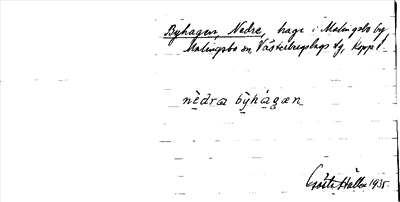 Byhagen, Nedre, hage i Malingsbo by
Malingsbo sn, Västerbergslags dg, Koppl
nèdra býhágæn
Gösta Hallén 1935